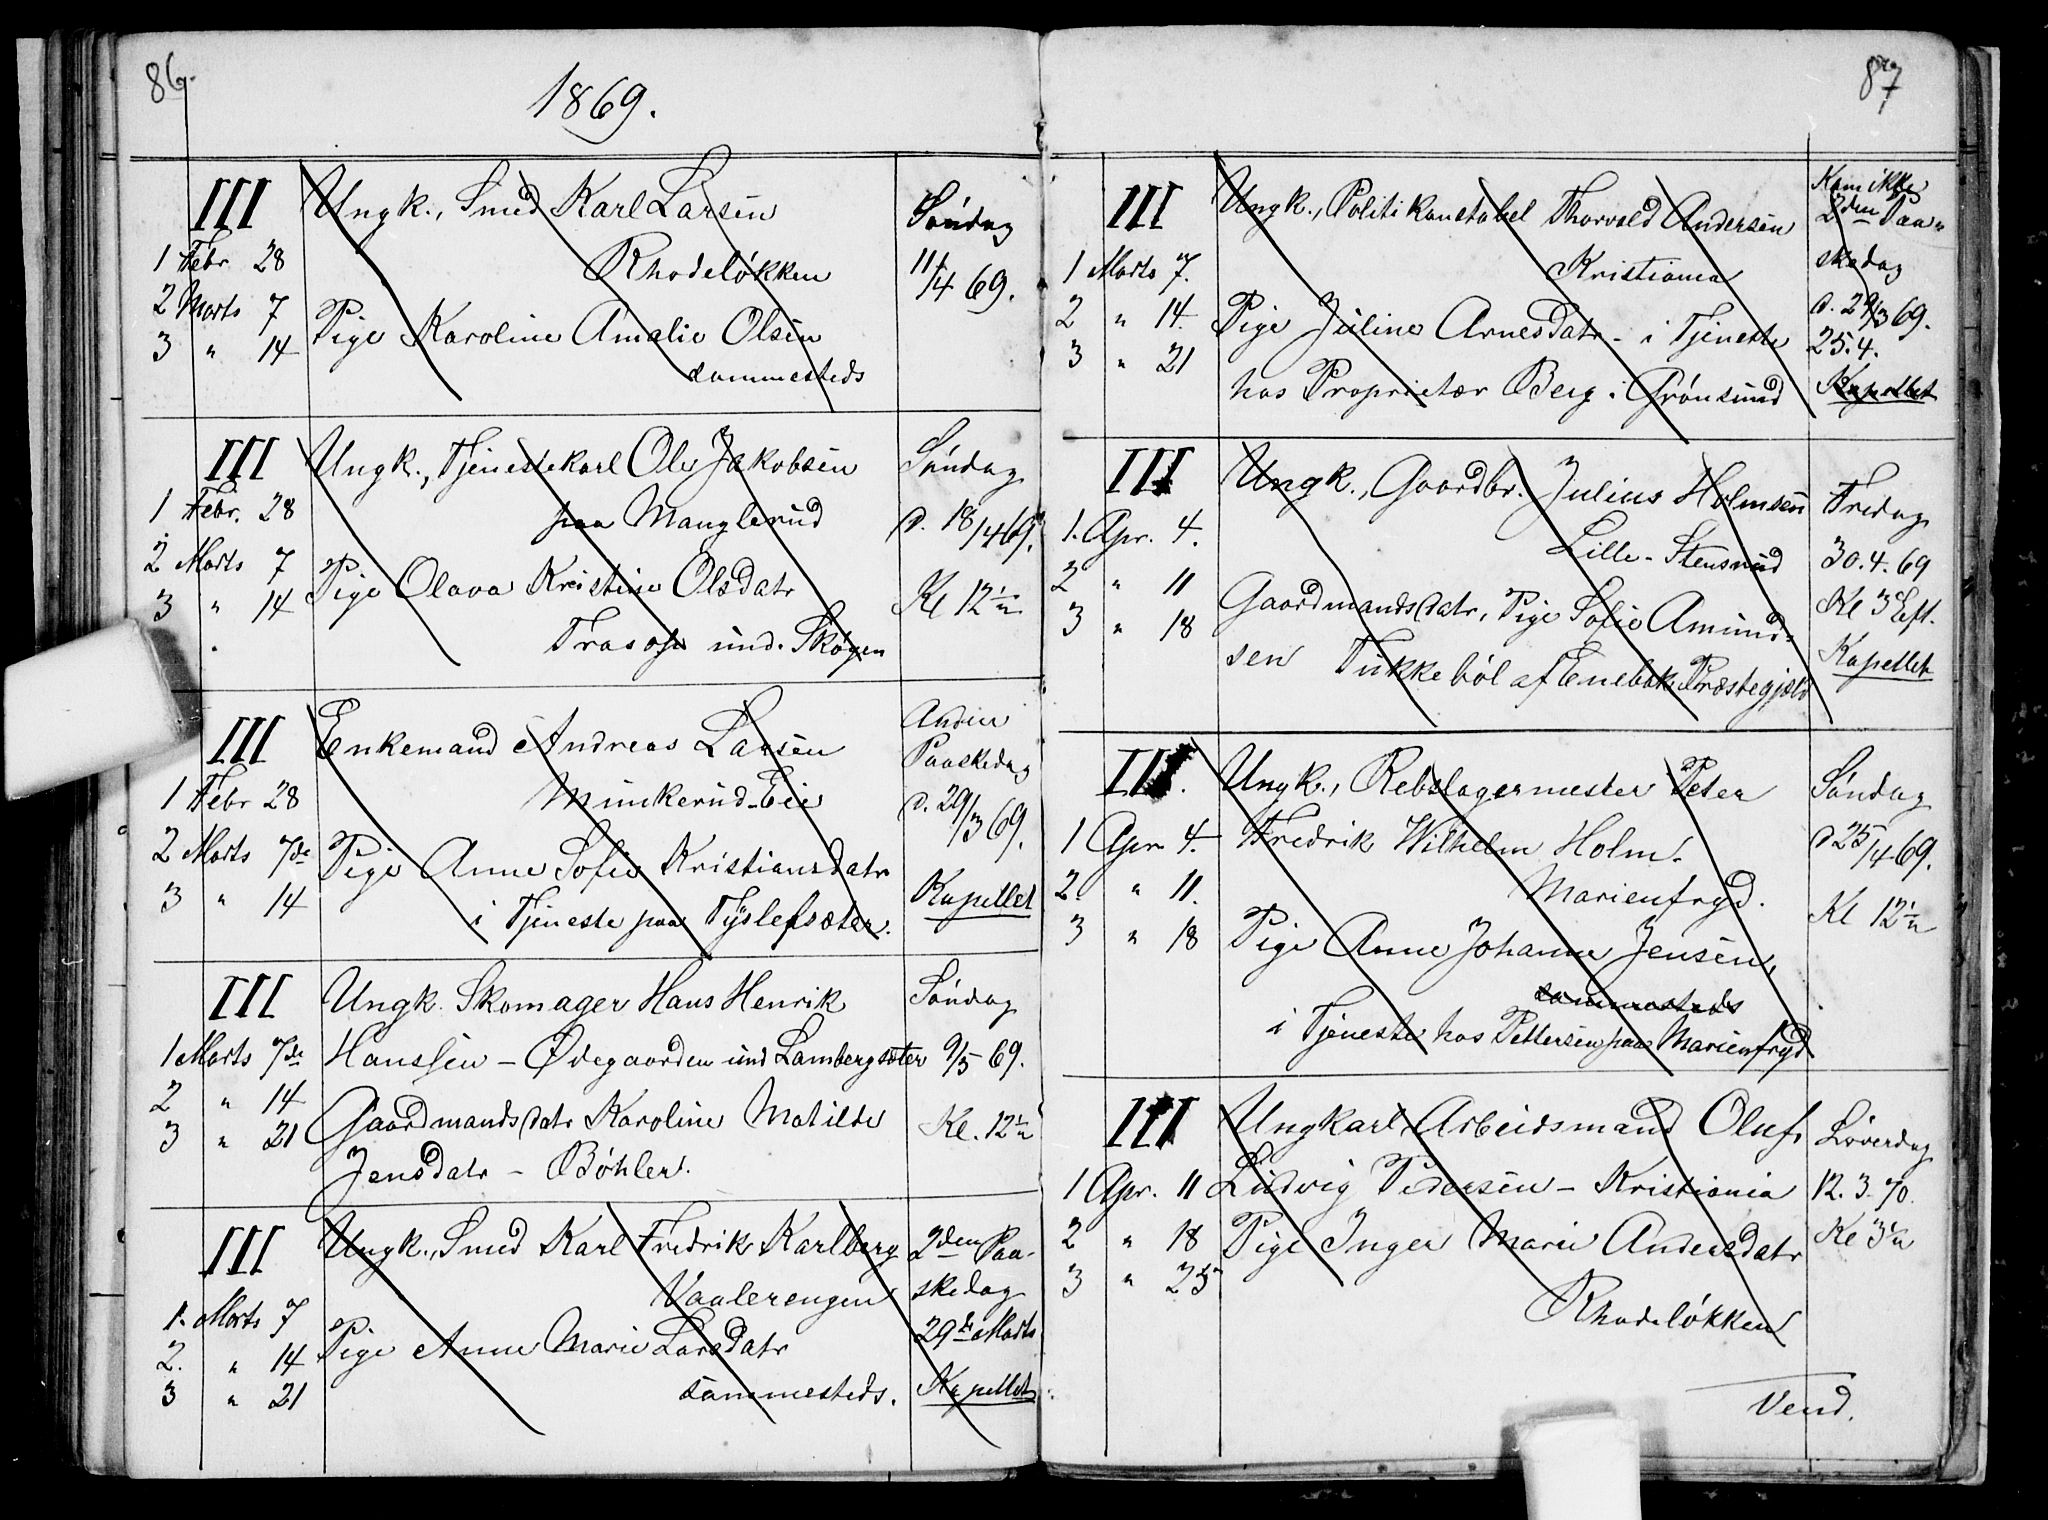 86.
1869.
III
Ungk., Smed Karl Larsen
Søndag
1 Febr. 28
Rhodeløkken
11/4 69.
2 Marts 7
Pige Karoline Amalie Olsen
3 " 14
sammesteds
III
Ungk., Tjenestekarl Ole Jakobsen
Søndag
1 Febr. 28
paa Manglerud
d. 18/4 69.
2 Marts 7
Pige Olava Kristine Olsdatr
Kl 12
3 " 14
Trasop und. Skøyen
III
Enkemand Andreas Larsen
Anden
Paaskedag
1 Febr 28
Munkerud-Eie
d. 29/3 69.
2 Marts 7de
Pige Anne Sofie Kristiansdatr
Kapellet
3 " 14
i Tjeneste paa Tyslefsæter.
III
Ungk. Skomager Hans Henrik
Søndag
1 Marts 7de
Hanssen - Ødegaarden und Lambergsæter
9/5 69.
2 " 14
Gaardmandsdatr Karoline Matilde
Kl. 12
3 " 21
Jensdatr - Bøhler.
III
Ungk., Smed Karl Fredrik Karlberg
2den Paa-
Vaalerengen
skedag
1. Marts 7
29de Marts
2. " 14
Pige Anne Marie Larsdatr
Kapellet
3 " 21
sammesteds.
87
III
Ungk., Politikonstabel Thorvald Andersen
Kom ikke
2den Paa-
1 Marts 7.
Kristiania
skedag
2 " 14.
Pige Juline Arnesdatr - i Tjeneste
d. 29/3 69.
25.4.
3 " 21
hos Proprietær Berg i Grønsund
Kapellet
III
Ungk., Gaardbr. Julius Holmsen
Fredag
1. Apr. 4.
Lille-Stensrud
30.4.69
2 " 11
Gaardmandsdatr, Pige Sofie Amund-
Kl 3 Eft.
3 " 18
sen Tukkebøl af Enebak Præstegjæld
Kapellet
III.
Ungk., Rebslagermester Peter
Søndag
1 Apr 4.
Fredrik Wilhelm Holm.
d 25/4 69.
2. " 11.
Marienfryd.
Kl 12
3 " 18
Pige Anne Johanne Jensen,
sammesteds
i Tjeneste hos Pettersen paa Marienfryd
III
Ungkarl Arbeidsmand Oluf
Løverdag
1 Apr. 11
Ludvig Pedersen - Kristiania
12.3.70.
2 " 18
Pige Inger Marie Andersdatr
Kl 3
3 " 25
Rhodeløkken
Vend.